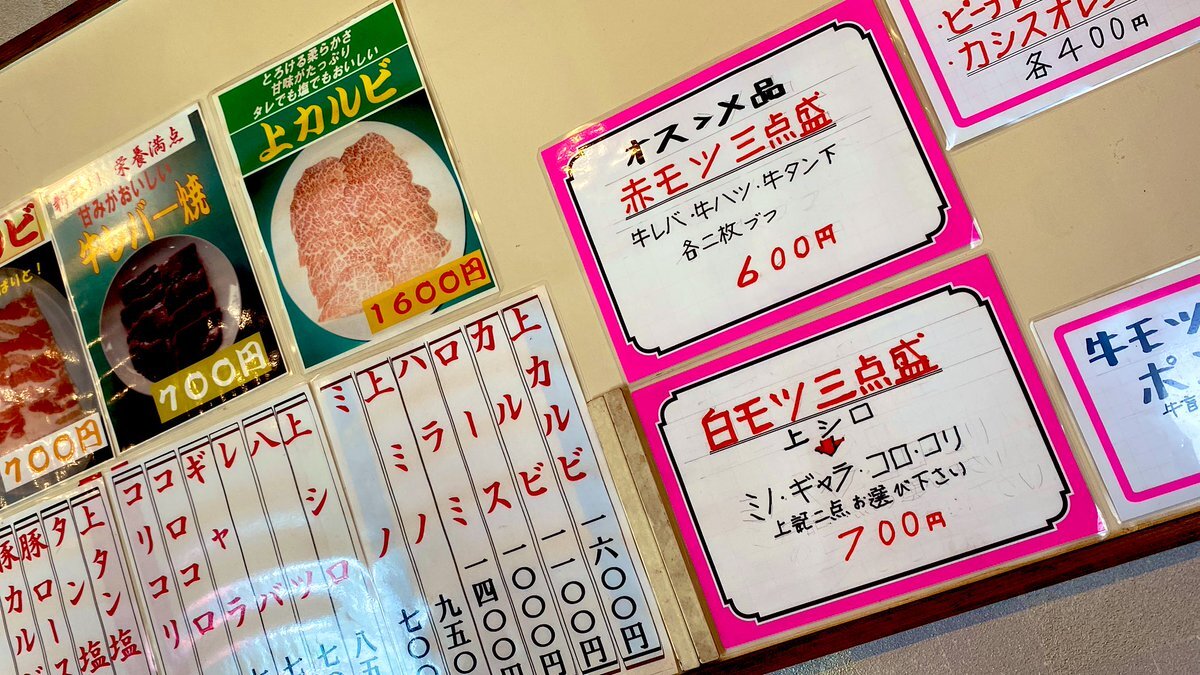 とろける柔らかさ
甘味がたっぷり
タレでも塩でもおいしい
上カルビ
1600円
栄養満点
甘みがおいしい
牛レバー焼
700円
ルビ
700円
オススメ品
赤モツ三点盛
牛レバ・牛ハツ・牛タン下
各二枚ヅツ
600円
白モツ三点盛
上シロ
ミノ・ギャラ・コロ・コリ
上記二点お選び下さい
700円
カシスオレ
各400円
牛モツ
ポ
上カルビ 一六〇〇円
カルビ 一一〇〇円
ロース 一〇〇〇円
ハラミ 一四〇〇
上ミノ 九五〇
ミノ 七〇〇
上シロ
ハツ
レバ
ギャラ
ココロ
コリコリ
上タン塩
タン塩
豚ロース
豚カルビ